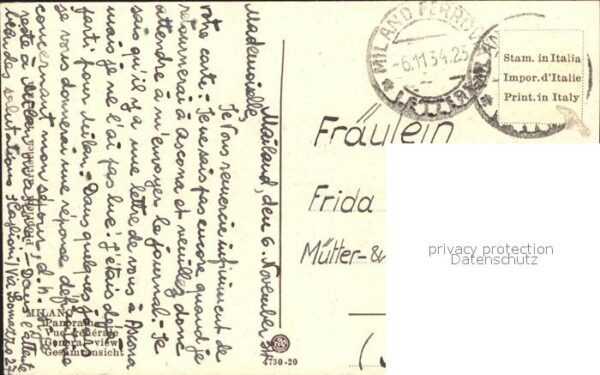 Mailand, den 6. November 34
Mademoiselle,
Je vous remercie infiniment de
votre carte. - Je ne sais pas encore quand je
retournerai à Ascona et veuillez donc
attendre à m'envoyer le journal. - Je
sais qu'il y a une lettre de vous à Ascona
mais je ne l'ai pas lue: j'étais déjà
parti pour Milan. - Dans quelques jours
je vous donnerai une réponse définitive
concernant mon séjour, d. h. si je
reste à Milan - Dans l'attente
salutations
MILANO FERROVIA
-6.11.34.23
LETTERE
MILANO
Stam. in Italia
Impor. d'Italie
Print. in Italy
Fräulein
Frida
Mütter- &
privacy protection
Datenschutz
MILANO
Panorama
Vue générale
General view
Gesamtansicht
4730-20